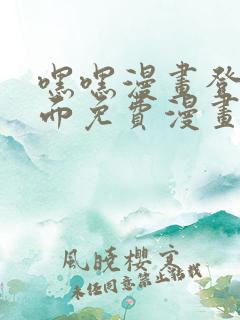 嘿嘿漫畫登
面免費漫畫
風曉櫻寒
未任同意禁止轉載